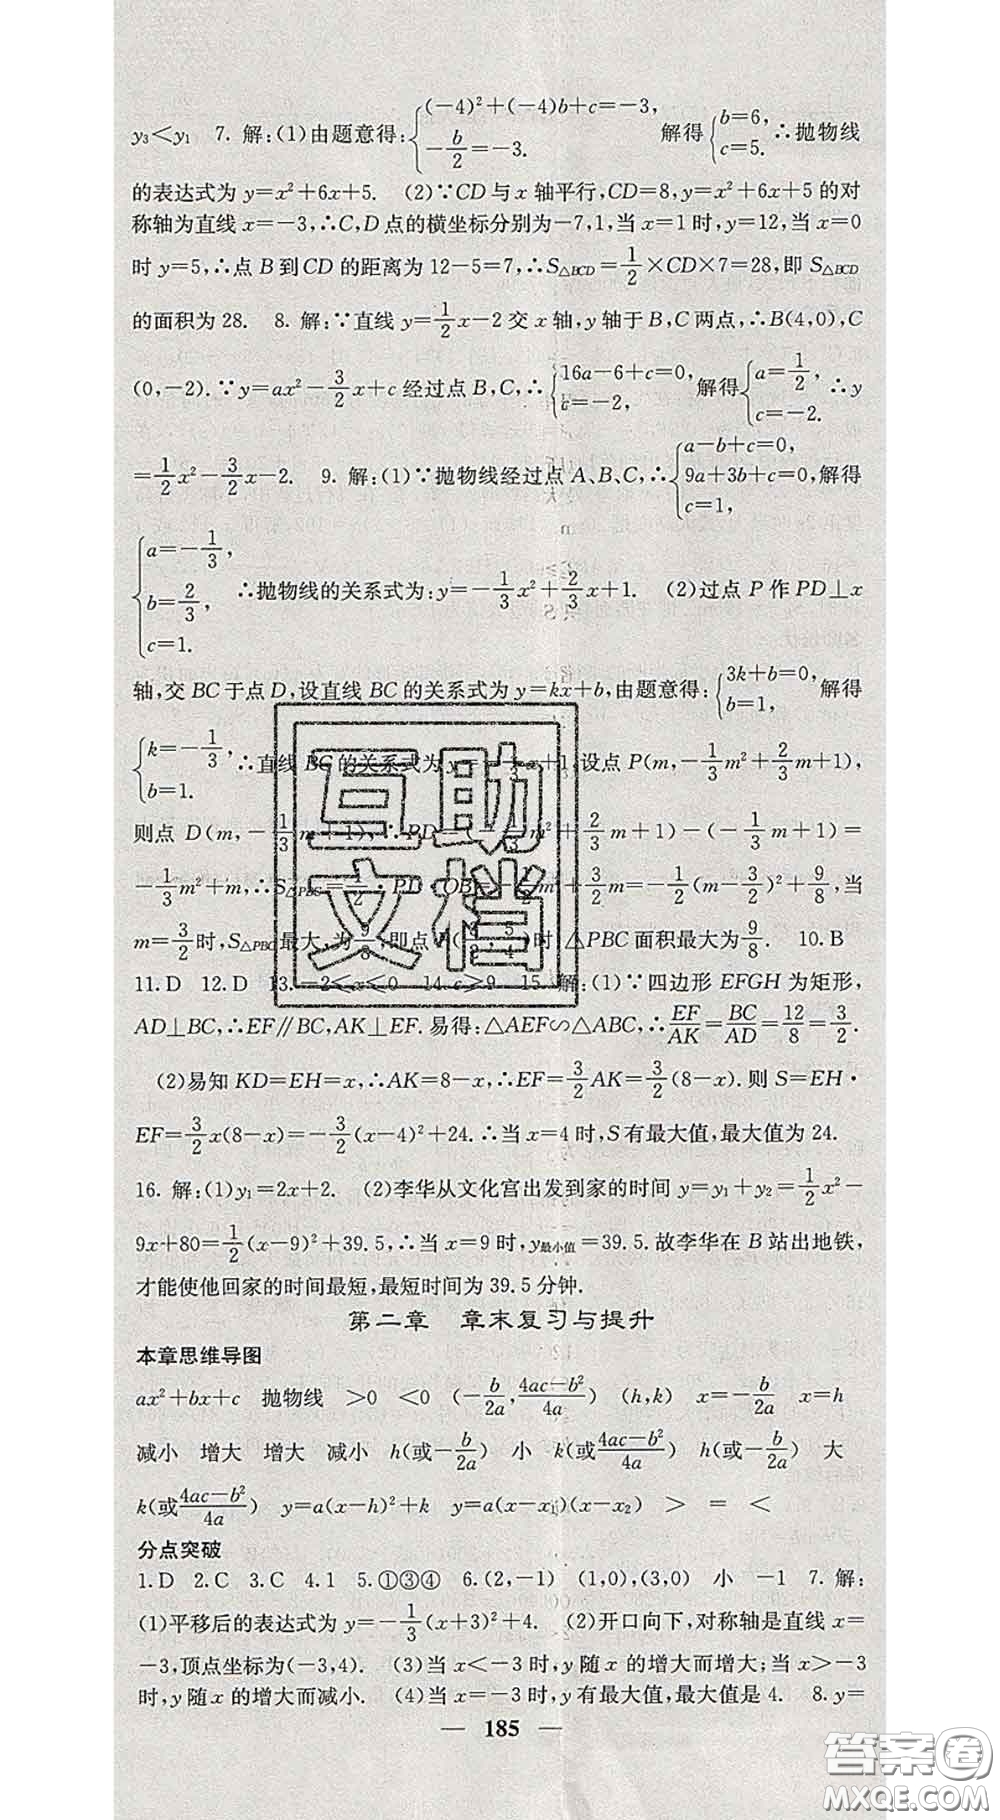 y₃<y₁ 7. 解:(1)由题意得:{(-4)²+(-4)b+c=-3, -b/2=-3. 解得{b=6, c=5. ∴抛物线
的表达式为 y=x²+6x+5. (2)∵CD 与 x 轴平行,CD=8,y=x²+6x+5 的对
称轴为直线 x=-3,∴C,D 点的横坐标分别为-7,1,当 x=1 时,y=12,当 x=0
时 y=5,∴点 B 到 CD 的距离为 12-5=7,∴S△BCD=1/2×CD×7=28,即 S△BCD
的面积为 28. 8. 解:∵直线 y=1/2x-2 交 x 轴,y 轴于 B,C 两点,∴B(4,0),C
(0,-2).∵y=ax²-3/2x+c 经过点 B,C,∴{16a-6+c=0, c=-2, 解得{a=1/2, c=-2. ∴y
=1/2x²-3/2x-2. 9. 解:(1)∵抛物线经过点 A、B、C,∴{a-b+c=0, 9a+3b+c=0, c=1, 解得
{a=-1/3, b=2/3, c=1. ∴抛物线的关系式为:y=-1/3x²+2/3x+1. (2)过点 P 作 PD⊥x
轴,交 BC 于点 D,设直线 BC 的关系式为 y=kx+b,由题意得:{3k+b=0, b=1, 解得
{k=-1/3, b=1. ∴直线 BC 的关系式为 y=-1/3x+1,设点 P(m,-1/3m²+2/3m+1),
则点 D(m,-1/3m+1),∴PD=(-1/3m²+2/3m+1)-(-1/3m+1)=
-1/3m²+m,∴S△PBC=1/2·PD·OB=-1/2m²+3/2m=-1/2(m-3/2)²+9/8,当
m=3/2时,S△PBC最大,为9/8,即点P(3/2,5/4)时,△PBC 面积最大为9/8. 10. B
11. D 12. D 13. -2<x<0 14. c>9 15. 解:(1)∵四边形 EFGH 为矩形,
AD⊥BC,∴EF∥BC,AK⊥EF.易得:△AEF∽△ABC,∴EF/AK=BC/AD=12/8=3/2.
(2)易知 KD=EH=x,∴AK=8-x,∴EF=3/2AK=3/2(8-x).则 S=EH·
EF=3/2x(8-x)=-3/2(x-4)²+24.∴当 x=4 时,S 有最大值,最大值为 24.
16. 解:(1)y₁=2x+2. (2)李华从文化宫出发到家的时间 y=y₁+y₂=1/2x²-
9x+80=1/2(x-9)²+39.5,∴当 x=9 时,y最小值=39.5.故李华在 B 站出地铁,
才能使他回家的时间最短,最短时间为 39.5 分钟.
第二章 章末复习与提升
本章思维导图
ax²+bx+c 抛物线 >0 <0 (-b/2a,4ac-b²/4a) (h,k) x=-b/2a x=h
减小 增大 增大 减小 h(或-b/2a) 小 k(或4ac-b²/4a) h(或-b/2a) 大
k(或4ac-b²/4a) y=a(x-h)²+k y=a(x-x₁)(x-x₂) > = <
分点突破
1. D 2. C 3. C 4. 1 5. ①③④ 6. (2,-1) (1,0),(3,0) 小 -1 7. 解:
(1)平移后的表达式为 y=-1/3(x+3)²+4. (2)开口向下,对称轴是直线 x=
-3,顶点坐标为(-3,4). (3)当 x<-3 时,y 随 x 的增大而增大;当 x>-3
时,y 随 x 的增大而减小. (4)当 x=-3 时,y 有最大值,最大值是 4. 8. y=
— 185 —
互助
文档
答案圈
MXQE.COM